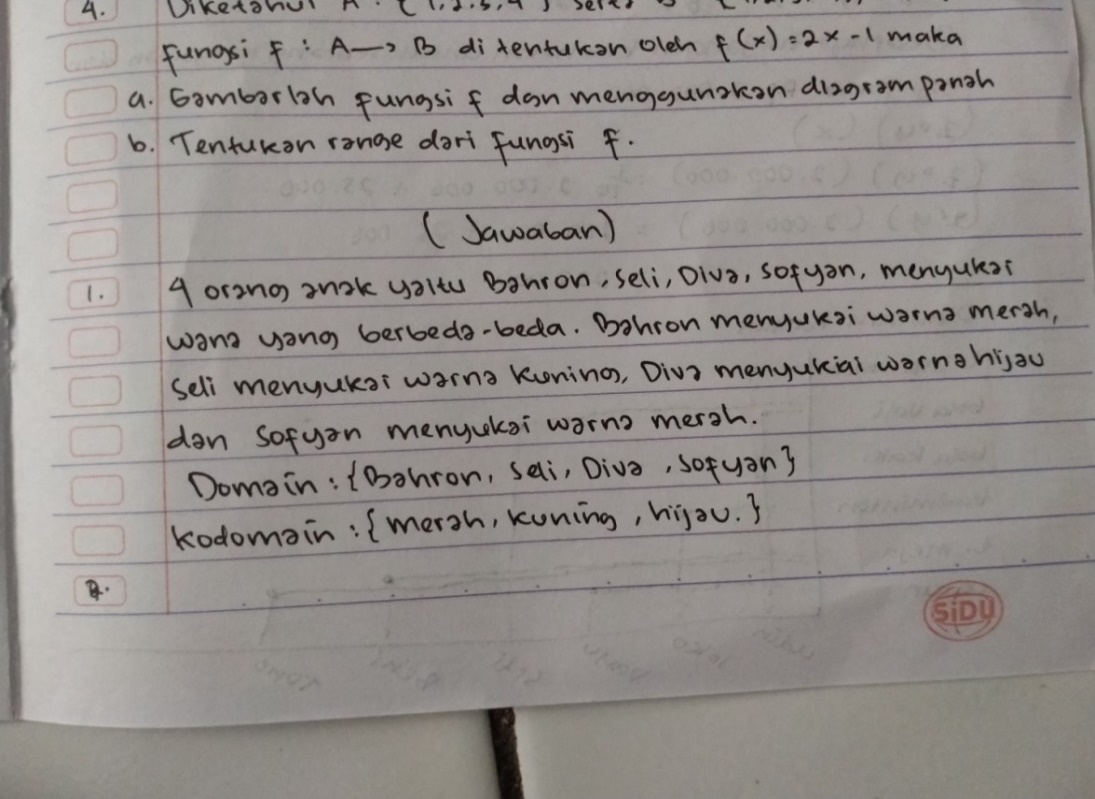 4. Diketahui A : { 1, 2, 3, 4 } serta B
fungsi f : A → B di tentukan oleh f (x) = 2x -1 maka
a. Gambarlah fungsi f dan menggunakan diagram panah
b. Tentukan range dari fungsi f.
( Jawaban)
1. 4 orang anak yaitu Bahron, Seli, Diva, Sofyan, menyukai
wana yang berbeda-beda. Bahron menyukai warna merah,
Seli menyukai warna kuning, Diva menyukiai warna hijau
dan Sofyan menyukai warna merah.
Domain : {Bahron, Seli, Diva , Sofyan}
Kodomain : { merah, kuning , hijau. }
2.
SiDU